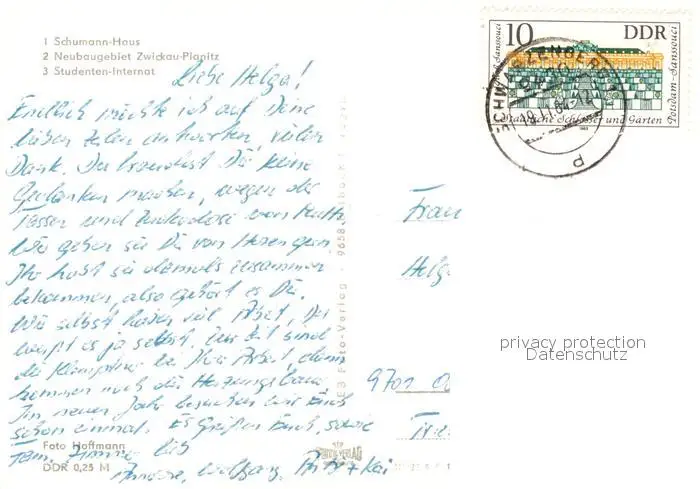 1 Schumann-Haus
2 Neubaugebiet Zwickau-Planitz
3 Studenten-Internat
Liebe Helga!
Endlich möchte ich auf Deine
lieben Zeilen antworten, vielen
Dank. Da brauchst Du keine
Gedanken machen, wegen der
Tassen und Zuckerdose von Mutti
Wir geben sie Dir von Herzen gern.
Ihr habt sie damals zusammen
bekommen, also gehört es Dir.
Wir selbst haben viel Arbeit, Du
weißt es ja selbst, zur Zeit sind
die Klempner bei ihrer Arbeit, dann
kommen noch die Heizungsbauer.
Im neuen Jahr besuchen wir Euch
schon einmal. Es Grüßen Euch, sowie
Fam.
Wolfgang, + Kai
Foto Hoffmann
DDR 0,25 M
VEB Foto-Verlag
10 DDR
Staatliche Schlösser und Gärten
Potsdam-Sanssouci
Frau
Helg
9701
privacy protection
Datenschutz